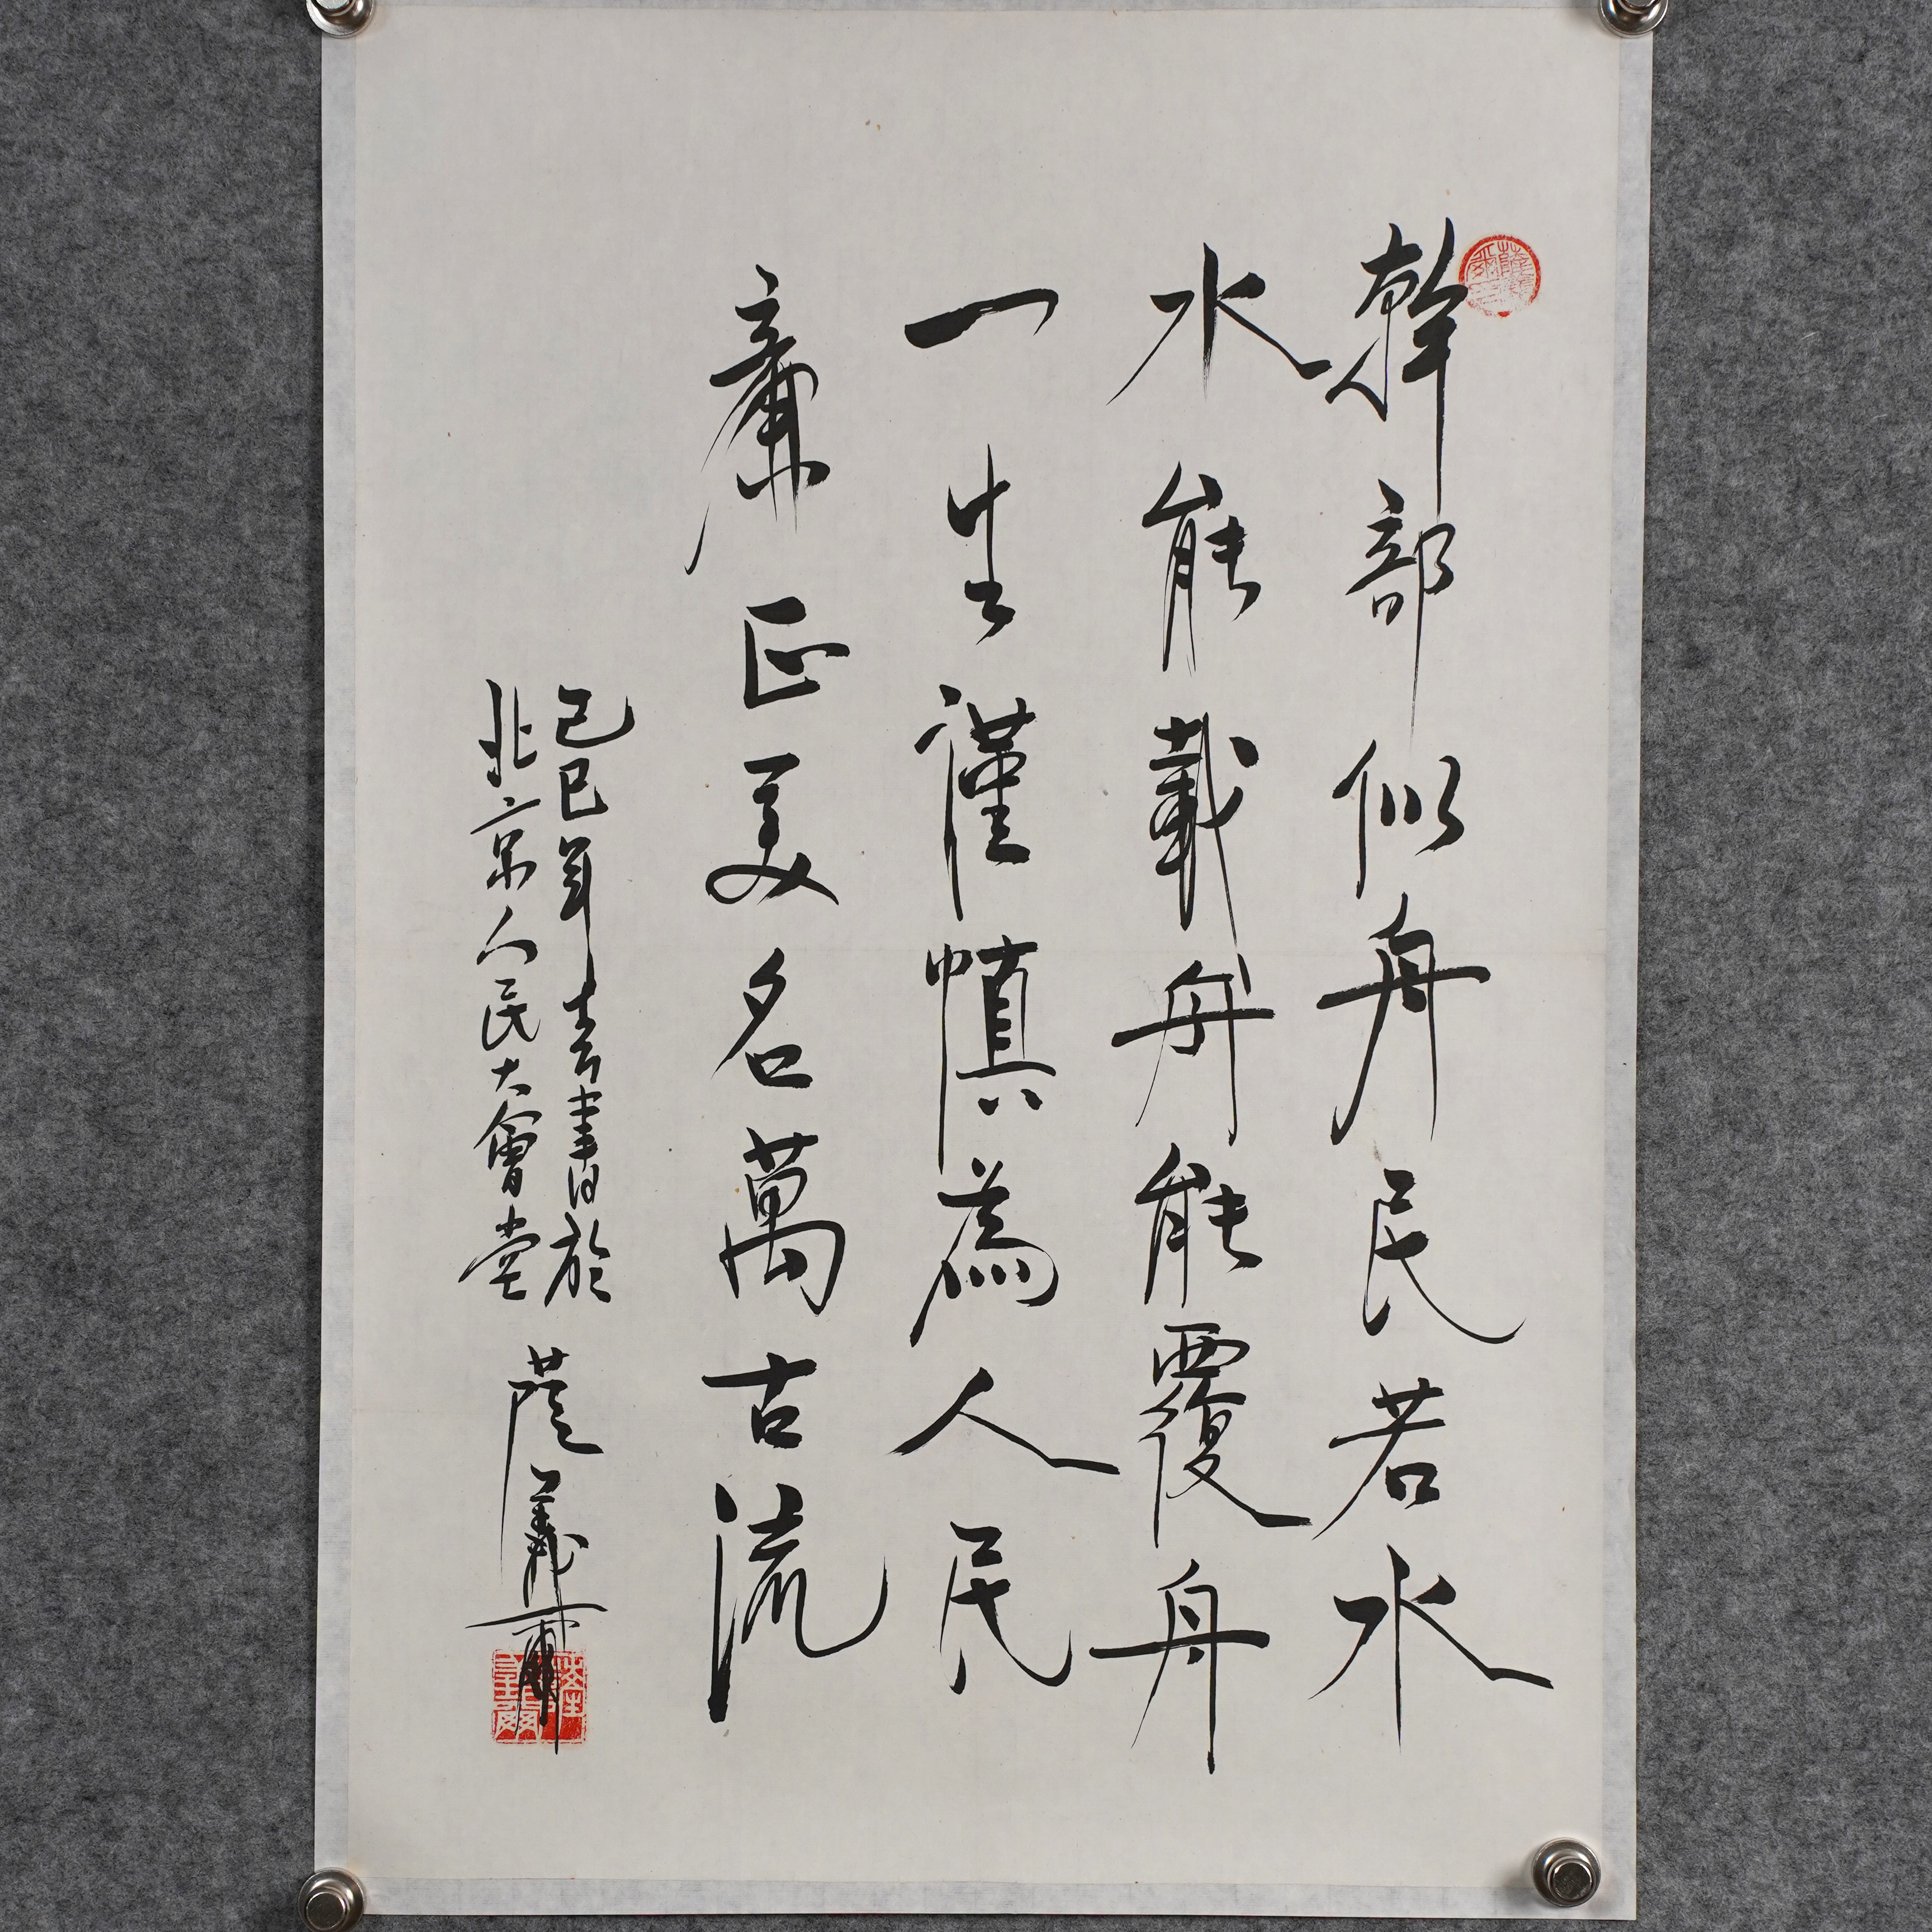 幹部似舟民若水
水能載舟能覆舟
一生謹慎為人民
廉正美名萬古流
己巳年書於
北京人民大會堂